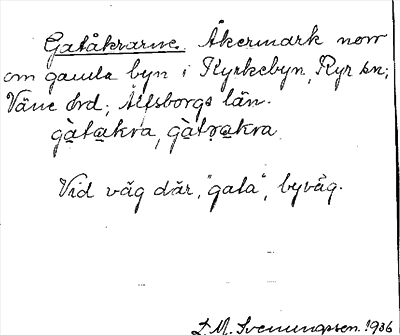 Gatåkrarne. Åkermark norr
om gamla byn i Kyrkebyn, Ryr sn;
Väne hrd; Älfsborgs län.
gàtakra, gàtrakra
Vid väg där, "gata", byväg.
D. M. Svenungsson. 1936